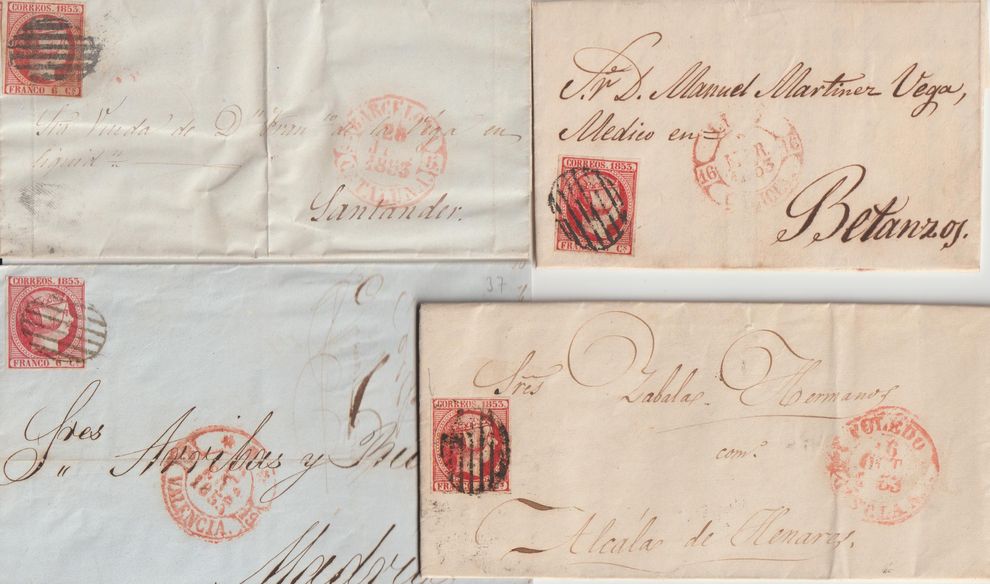 CORREOS. 1853.
FRANCO 6 Cs
Sra Viuda de Dn Fran co de la Vega en
liquidn
BARCELO
28
1853
CATALUÑA
Santander.
Sr. D. Manuel Martinez Vega,
Medico en =
CORREOS. 1853.
FRANCO Cs
16
53
Betanzos.
37
CORREOS. 1853.
FRANCO 6 Cs
Sres
Arribas y
1853
VALENCIA.
Madri
CORREOS. 1853.
FRANCO 6 Cs
Sres Zabala Hermanos
como.
TOLEDO
16
OCT
53
Alcála de Henares.